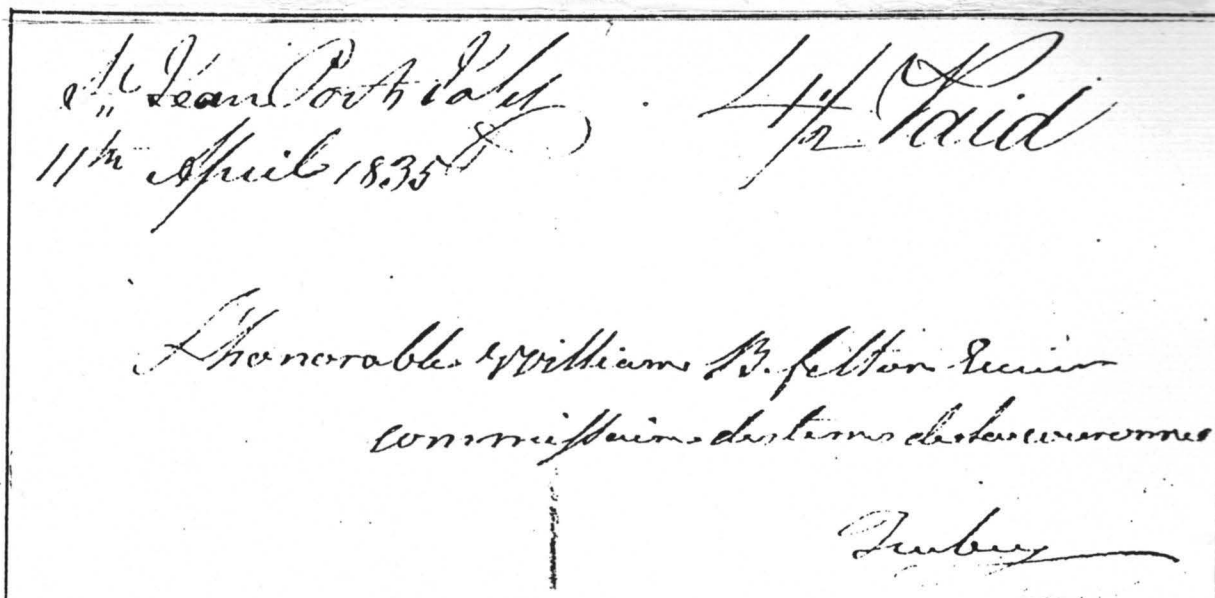 St Jean Port Joly
11th April 1835
4 1/2 Paid
L'honorable William B. felton Ecuier
commissaire des terres de la couronne
Quebec